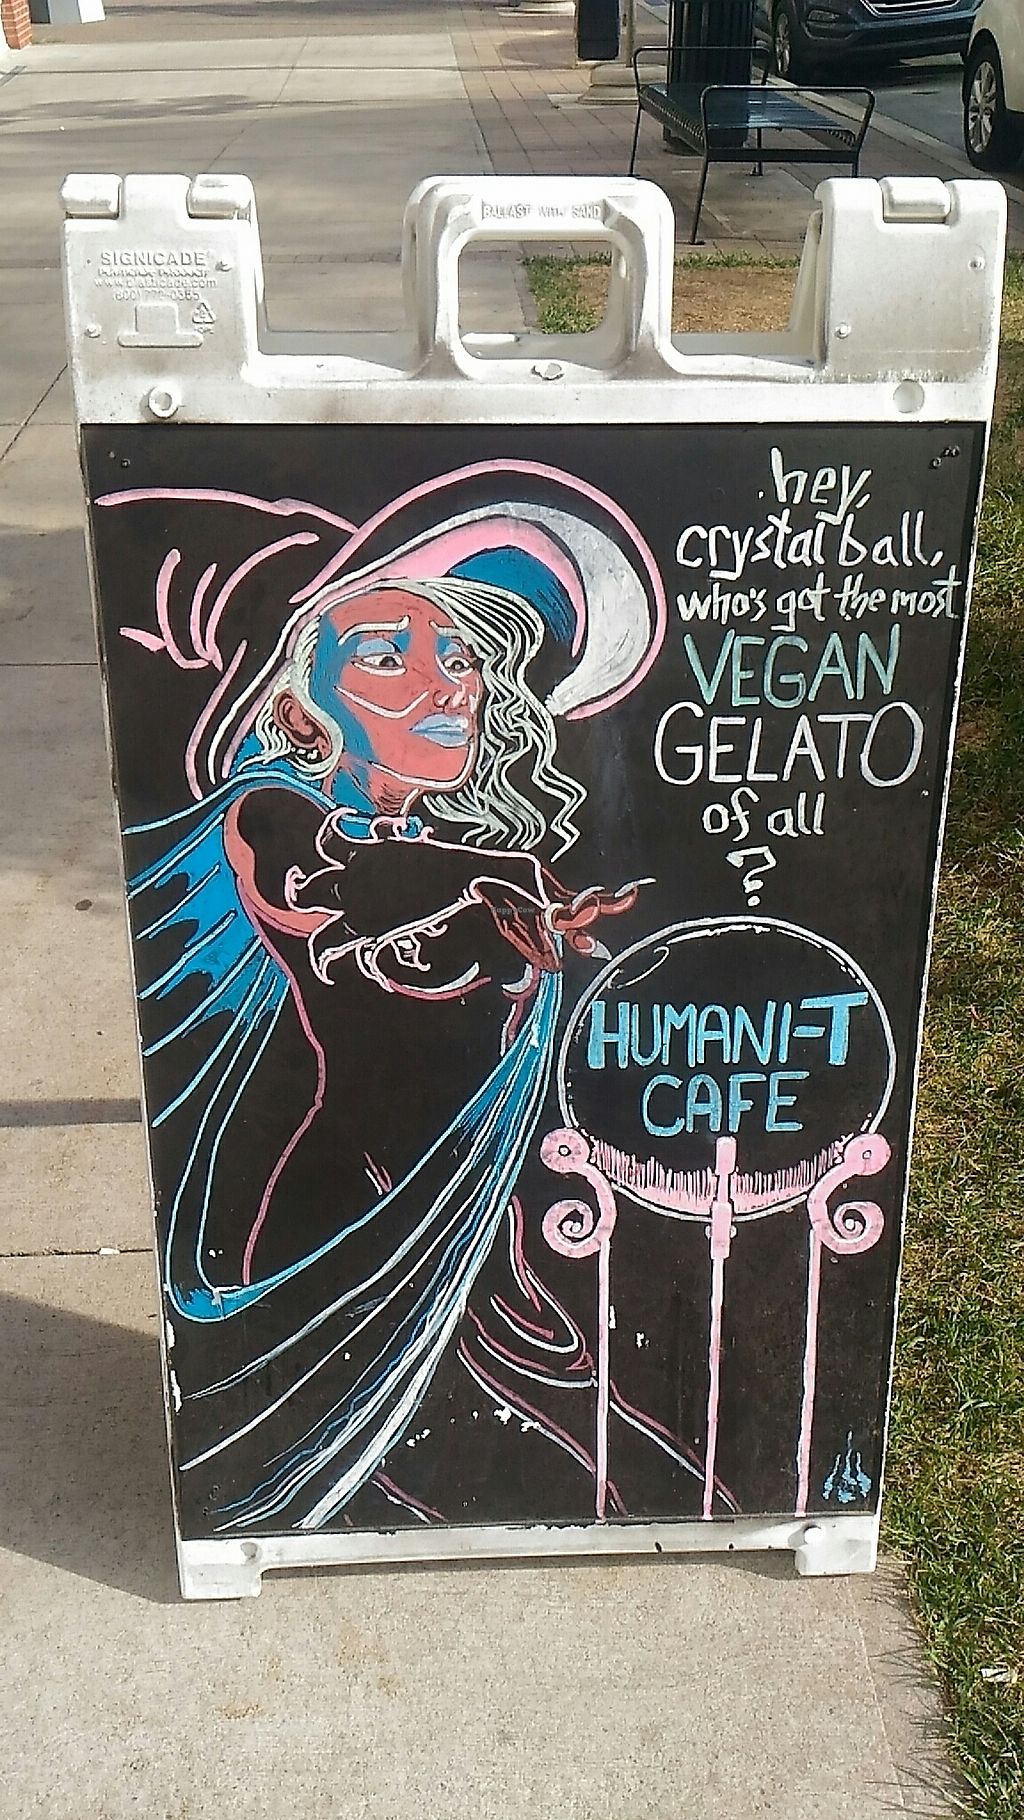 BALLAST WITH SAND
SIGNICADE
www.plasticade.com
(800) 772-0355
hey,
crystal ball,
who's got the most
VEGAN
GELATO
of all
?
HappyCow
HUMANI-T
CAFE